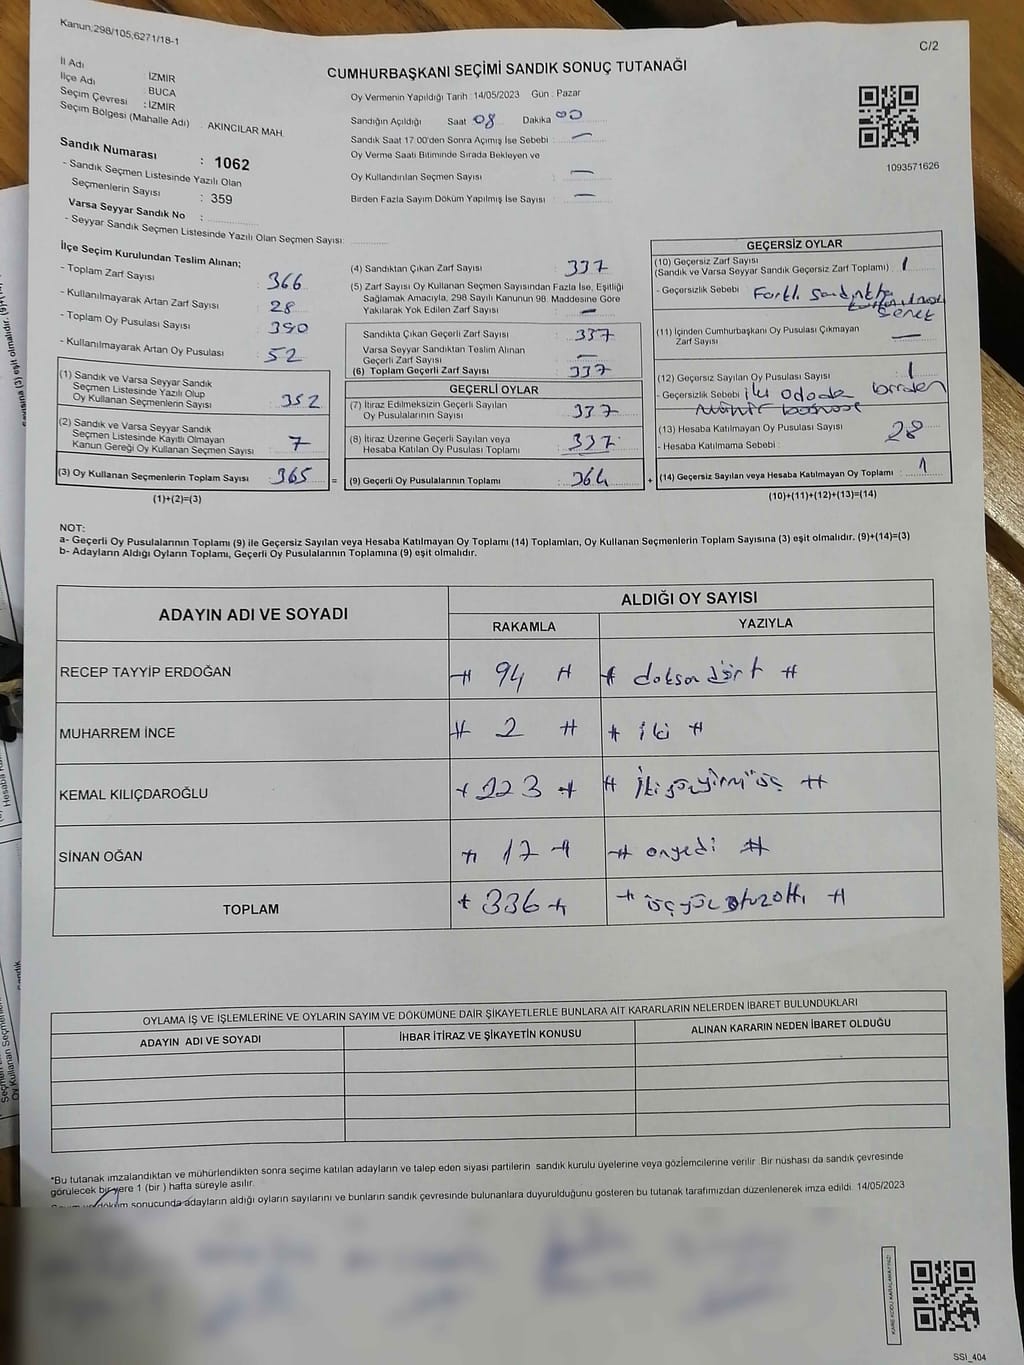 Kanun:298/105;6271/18-1
C/2
CUMHURBAŞKANI SEÇİMİ SANDIK SONUÇ TUTANAĞI
İl Adı : İZMİR
İlçe Adı : BUCA
Seçim Çevresi : İZMİR
Seçim Bölgesi (Mahalle Adı) : AKINCILAR MAH.
Sandık Numarası : 1062
- Sandık Seçmen Listesinde Yazılı Olan
Seçmenlerin Sayısı : 359
Varsa Seyyar Sandık No :
- Seyyar Sandık Seçmen Listesinde Yazılı Olan Seçmen Sayısı:
Oy Vermenin Yapıldığı Tarih :14/05/2023 Gün : Pazar
Sandığın Açıldığı Saat 08 Dakika 00
Sandık Saat 17:00'den Sonra Açımış İse Sebebi : —
Oy Verme Saati Bitiminde Sırada Bekleyen ve
Oy Kullandırılan Seçmen Sayısı : —
Birden Fazla Sayım Döküm Yapılmış İse Sayısı : —
1093571626
İlçe Seçim Kurulundan Teslim Alınan;
- Toplam Zarf Sayısı : 366
- Kullanılmayarak Artan Zarf Sayısı : 28
- Toplam Oy Pusulası Sayısı : 390
- Kullanılmayarak Artan Oy Pusulası : 52
(1) Sandık ve Varsa Seyyar Sandık
Seçmen Listesinde Yazılı Olup
Oy Kullanan Seçmenlerin Sayısı : 352
(2) Sandık ve Varsa Seyyar Sandık
Seçmen Listesinde Kayıtlı Olmayan
Kanun Gereği Oy Kullanan Seçmen Sayısı : 7
(3) Oy Kullanan Seçmenlerin Toplam Sayısı : 365 =
(1)+(2)=(3)
(4) Sandıktan Çıkan Zarf Sayısı : 337
(5) Zarf Sayısı Oy Kullanan Seçmen Sayısından Fazla İse, Eşitliği
Sağlamak Amacıyla, 298 Sayılı Kanunun 98. Maddesine Göre
Yakılarak Yok Edilen Zarf Sayısı : —
Sandıkta Çıkan Geçerli Zarf Sayısı : 337
Varsa Seyyar Sandıktan Teslim Alınan
Geçerli Zarf Sayısı : —
(6) Toplam Geçerli Zarf Sayısı : 337
GEÇERLİ OYLAR
(7) İtiraz Edilmeksizin Geçerli Sayılan
Oy Pusulalarının Sayısı : 337
(8) İtiraz Üzerine Geçerli Sayılan veya
Hesaba Katılan Oy Pusulası Toplamı : 337
(9) Geçerli Oy Pusulalarının Toplamı : 364 +
GEÇERSİZ OYLAR
(10) Geçersiz Zarf Sayısı
(Sandık ve Varsa Seyyar Sandık Geçersiz Zarf Toplamı) : 1
- Geçersizlik Sebebi : Farklı
(11) İçinden Cumhurbaşkanı Oy Pusulası Çıkmayan
Zarf Sayısı : —
(12) Geçersiz Sayılan Oy Pusulası Sayısı : 1
- Geçersizlik Sebebi : iki birden
(13) Hesaba Katılmayan Oy Pusulası Sayısı : 28
- Hesaba Katılmama Sebebi :
(14) Geçersiz Sayılan veya Hesaba Katılmayan Oy Toplamı : 1
(10)+(11)+(12)+(13)=(14)
NOT:
a- Geçerli Oy Pusulalarının Toplamı (9) ile Geçersiz Sayılan veya Hesaba Katılmayan Oy Toplamı (14) Toplamları, Oy Kullanan Seçmenlerin Toplam Sayısına (3) eşit olmalıdır. (9)+(14)=(3)
b- Adayların Aldığı Oyların Toplamı, Geçerli Oy Pusulalarının Toplamına (9) eşit olmalıdır.
ADAYIN ADI VE SOYADI ALDIĞI OY SAYISI
RAKAMLA YAZIYLA
RECEP TAYYİP ERDOĞAN # 94 # # doksandört #
MUHARREM İNCE # 2 # # iki #
KEMAL KILIÇDAROĞLU # 223 # # ikiyüzyirmiüç #
SİNAN OĞAN # 17 # # onyedi #
TOPLAM # 336 # # üçyüzotuzaltı #
OYLAMA İŞ VE İŞLEMLERİNE VE OYLARIN SAYIM VE DÖKÜMÜNE DAİR ŞİKAYETLERLE BUNLARA AİT KARARLARIN NELERDEN İBARET BULUNDUKLARI
ADAYIN ADI VE SOYADI İHBAR İTİRAZ VE ŞİKAYETİN KONUSU ALINAN KARARIN NEDEN İBARET OLDUĞU
*Bu tutanak imzalandıktan ve mühürlendikten sonra seçime katılan adayların ve talep eden siyasi partilerin sandık kurulu üyelerine veya gözlemcilerine verilir. Bir nüshası da sandık çevresinde
görülecek bir yere 1 (bir ) hafta süreyle asılır.
döküm sonucunda adayların aldığı oyların sayılarını ve bunların sandık çevresinde bulunanlara duyurulduğunu gösteren bu tutanak tarafımızdan düzenlenerek imza edildi. 14/05/2023
KARE KODU KARALAMAYINIZ!
SSİ_404